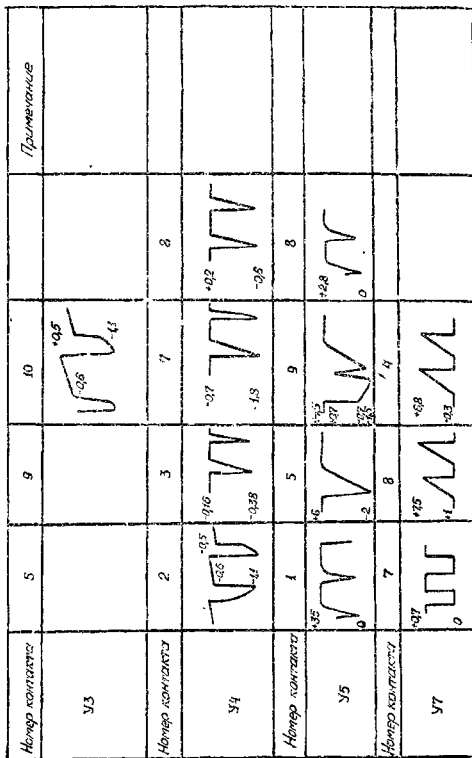 Номер контакта 5 9 10 Примечание
У3 -0,6 +0,5 -1,1
Номер контакта 2 3 7 8
У4 -0,6 -0,5 -1,1 -0,16 -0,38 -0,7 -1,3 +0,2
Номер контакта 1 5 9 8
У5 +35 0 +6 -2 +2,8 0
Номер контакта 7 8 4
У7 +0,7 0 +7,5 +1 +6,8 -0,3